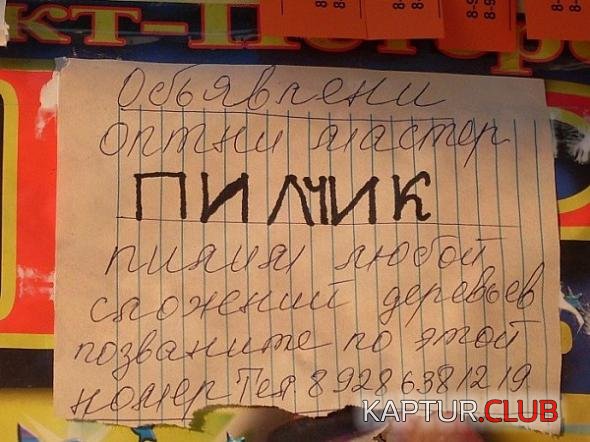 кт-Петер
Объявлени
оптни мастор
ПИЛЧИК
пилим любой
сложений деревьев
позваните по этой
номер Тел 89286381219
KAPTUR.CLUB